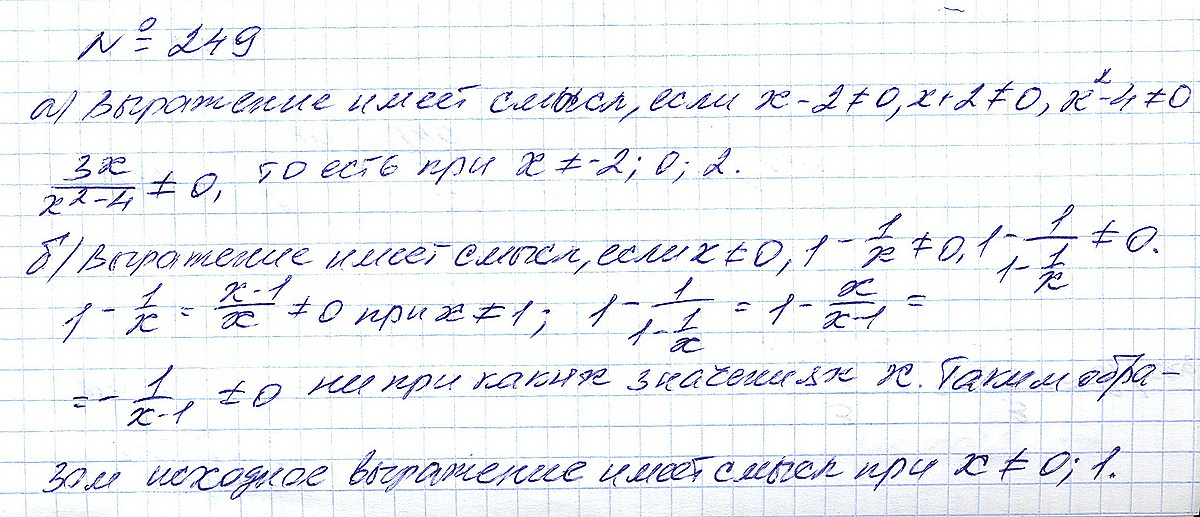 № 249
а) Выражение имеет смысл, если x - 2 ≠ 0, x + 2 ≠ 0, x² - 4 ≠ 0
3x/(x² - 4) ≠ 0, то есть при x ≠ -2; 0; 2.
б) Выражение имеет смысл, если x ≠ 0, 1 - 1/x ≠ 0, 1 - 1/(1 - 1/x) ≠ 0.
1 - 1/x = (x - 1)/x ≠ 0 при x ≠ 1; 1 - 1/(1 - 1/x) = 1 - x/(x - 1) =
= - 1/(x - 1) ≠ 0 ни при каких значениях x. Таким обра-
зом исходное выражение имеет смысл при x ≠ 0; 1.